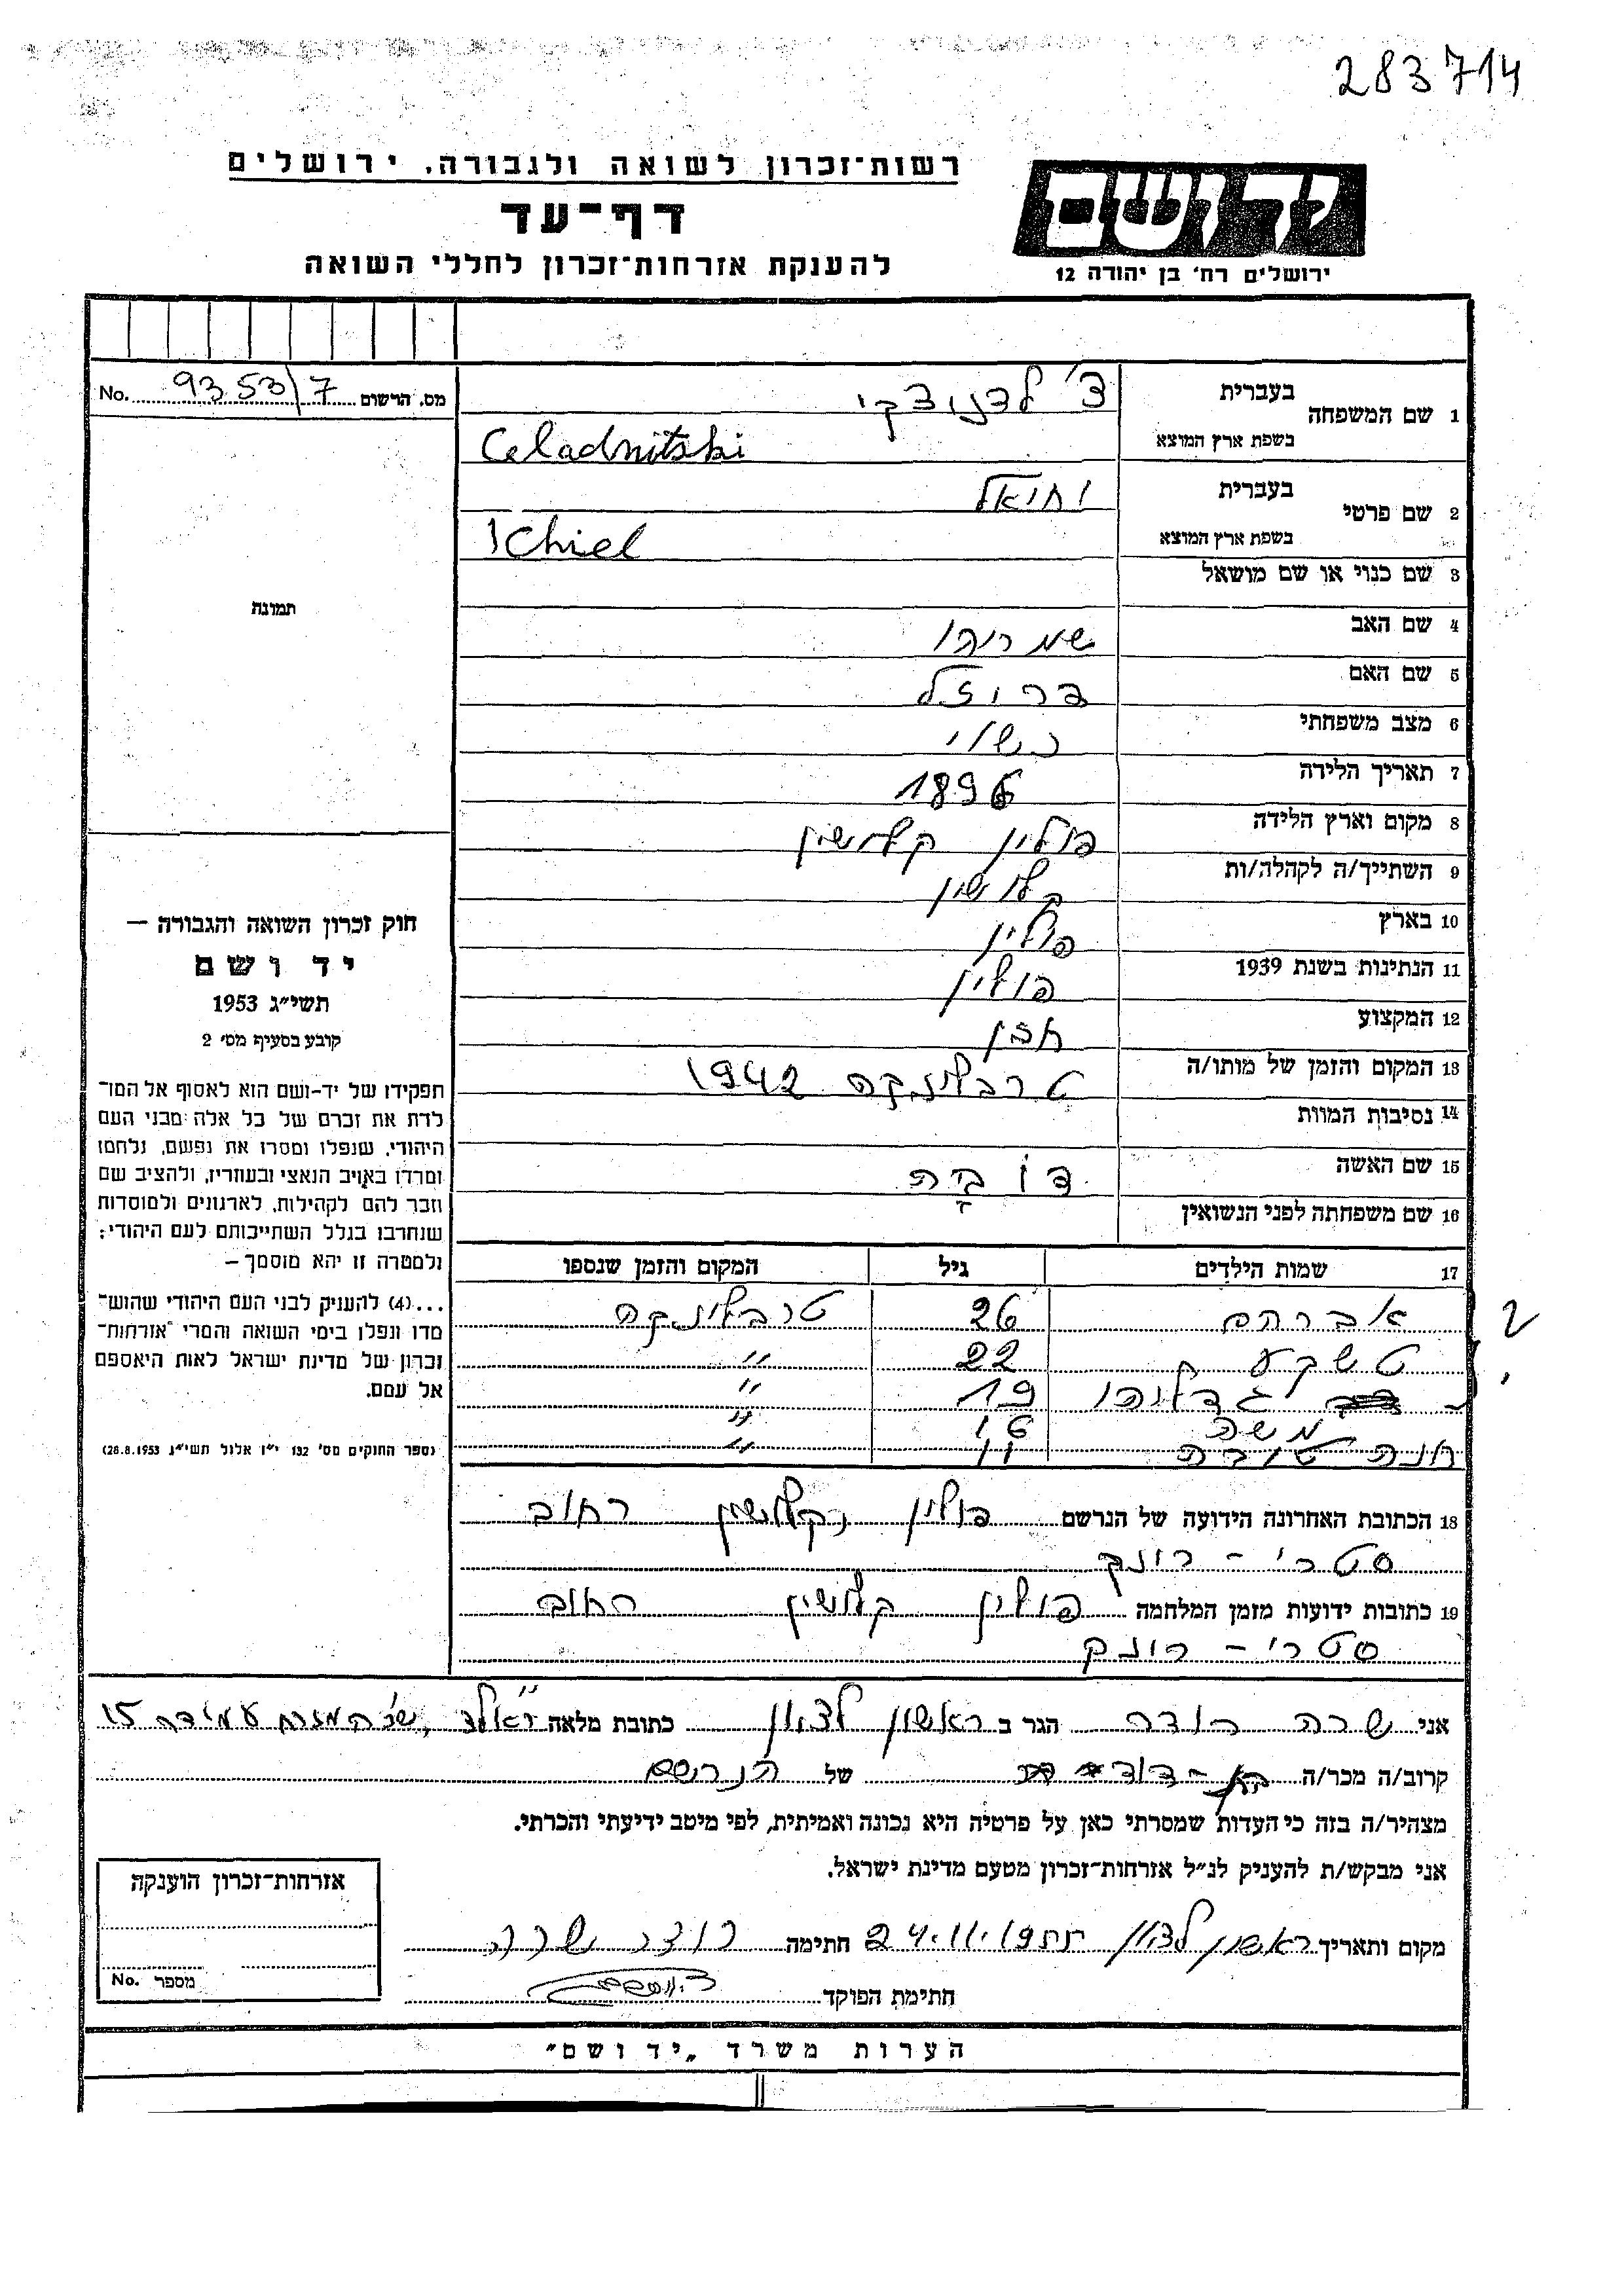 283714
רשות־זכרון לשואה ולגבורה, ירושלים
דף־עד
להענקת אזרחות־זכרון לחללי השואה
יד ושם
ירושלים רח׳ בן יהודה 12
מס. הרשום 9353/7 No.
1 שם המשפחה בעברית צ׳לדניצקי
בשפת ארץ המוצא Celadnitski
2 שם פרטי בעברית יחיאל
בשפת ארץ המוצא Ichiel
3 שם כנוי או שם מושאל
4 שם האב שמריהו
5 שם האם ברוזל
6 מצב משפחתי נשוי
7 תאריך הלידה 1896
8 מקום וארץ הלידה פולין קלושין
9 השתייך/ה לקהלה/ות קלושין
10 בארץ פולין
11 הנתינות בשנת 1939 פולין
12 המקצוע חזן
13 המקום והזמן של מותו/ה טרבלינקה 1942
14 נסיבות המוות
15 שם האשה דוֹבָה
16 שם משפחתה לפני הנשואין
17 שמות הילדים גיל המקום והזמן שנספו
אברהם 26 טרבלינקה
22 "
גדליהו 19 "
משה 16 "
חנה טובה 11 "
תמונה
חוק זכרון השואה והגבורה —
יד ושם
תשי״ג 1953
קובע בסעיף מס׳ 2
תפקידו של יד-ושם הוא לאסוף אל המו־
לדת את זכרם של כל אלה מבני העם
היהודי, שנפלו ומסרו את נפשם, נלחמו
ומרדו באויב הנאצי ובעוזריו, ולהציב שם
וזכר להם לקהילות, לארגונים ולמוסדות
שנחרבו בגלל השתייכותם לעם היהודי;
ולמטרה זו יהא מוסמך —
...(4) להעניק לבני העם היהודי שהוש־
מדו ונפלו בימי השואה והמרי ״אזרחות־
זכרון של מדינת ישראל לאות היאספם
אל עמם.
(ספר החוקים מס׳ 132 י״ז אלול תשי״ג 28.8.1953)
18 הכתובת האחרונה הידועה של הנרשם פולין קלושין רחוב
סטרי - רונק
19 כתובות ידועות מזמן המלחמה פולין קלושין רחוב
סטרי - רונק
אני שרה רודה הגר ב ראשון לציון כתובת מלאה ראשל״צ, שכ׳ המזרח עמידר 15
קרוב/ה מכר/ה בת-דוד של הנרשם
מצהיר/ה בזה כי העדות שמסרתי כאן על פרטיה היא נכונה ואמיתית, לפי מיטב ידיעתי והכרתי.
אני מבקש/ת להעניק לנ״ל אזרחות־זכרון מטעם מדינת ישראל.
מקום ותאריך ראשון לציון 24.11.19 חתימה שרה
חתימת הפוקד
אזרחות־זכרון הוענקה
מספר No.
הערות משרד „יד ושם״